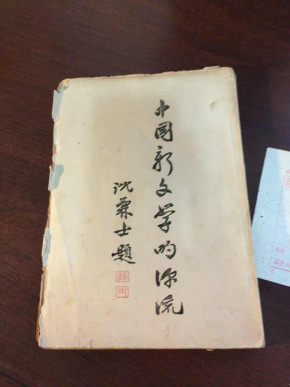 中国新文学的源流
沈兼士题